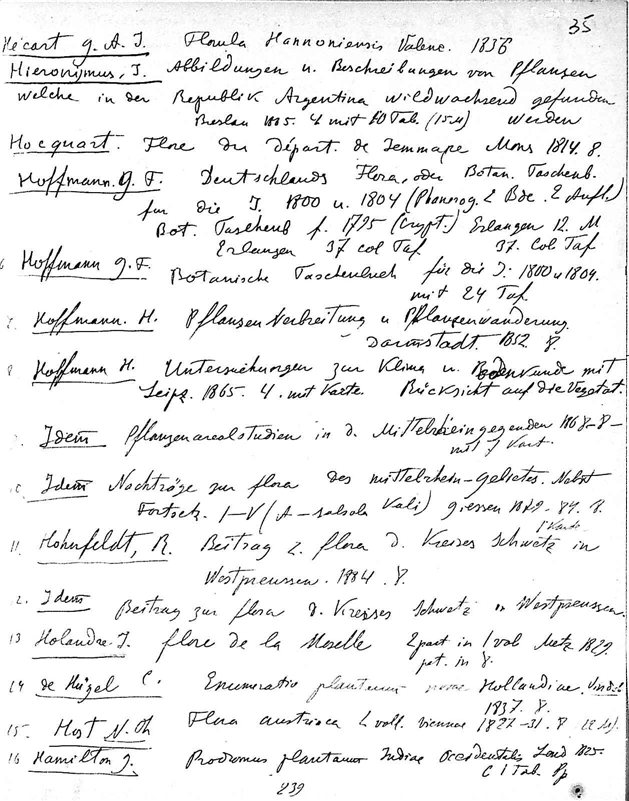 35
Hécart g. A. J. Florula Hannoniensis Valenc. 1836
Hieronymus, J. Abbildungen u. Beschreibungen von Pflanzen
welche in der Republik Argentina wildwachsend gefunden
Breslau 1885. 4 mit 10 Tab. (15 M) werden
Hocquart. Flore du Départ. de Jemmape Mons 1814. 8.
Hoffmann. g. F. Deutschlands Flora, oder Botan. Taschenb.
fur die J. 1800 u. 1804 (Phanerog. 2 Bde. 2 Aufl.)
Bot. Taschenb f. 1795 (Crypt.) Erlangen 12. M
Erlangen 37 col Taf 37. Col Taf
Hoffmann g. F. Botanische Taschenbuch für die J: 1800 u 1804.
mit 24 Taf.
Hoffmann. H. Pflanzen Verbreitung u Pflanzenwanderung.
Darmstadt. 1852. 8
Hoffmann H. Untersuchungen zur Klima u. Bodenkunde mit
Leipz. 1865. 4. mit Karte. Rücksicht auf die Vegetat.
Idem Pflanzenarealstudien in d. Mittelrheingegenden 1868-8-
mit 7 Kart.
Idem Nachträge zur flora des mittelrhein-gebietes. Nebst
Fortsetz. I-V (A-salsola Kali) giessen 1879-89. 8.
1 Karte.
11. Hohnfeldt, R. Beitrag z. flora d. Kreises Schwetz in
Westpreussen. 1884. 8.
2. Idem Beitrag zur flora d. Kreises Schwetz in Westpreussen.
13 Holandre J. flore de la Moselle 2 part in 1 vol Metz 1829.
pet. in 8.
14 de Hügel C. Enumeratio plantarum novae Hollandiae. Vindob
1837. 8.
15. Host N. Th Flora austriaca 2 voll. Viennae 1827-31. 8
16 Hamilton J. Prodromus plantarum Indiae Occidentalis Lond 1825.
C 1 Tab. Pp
239